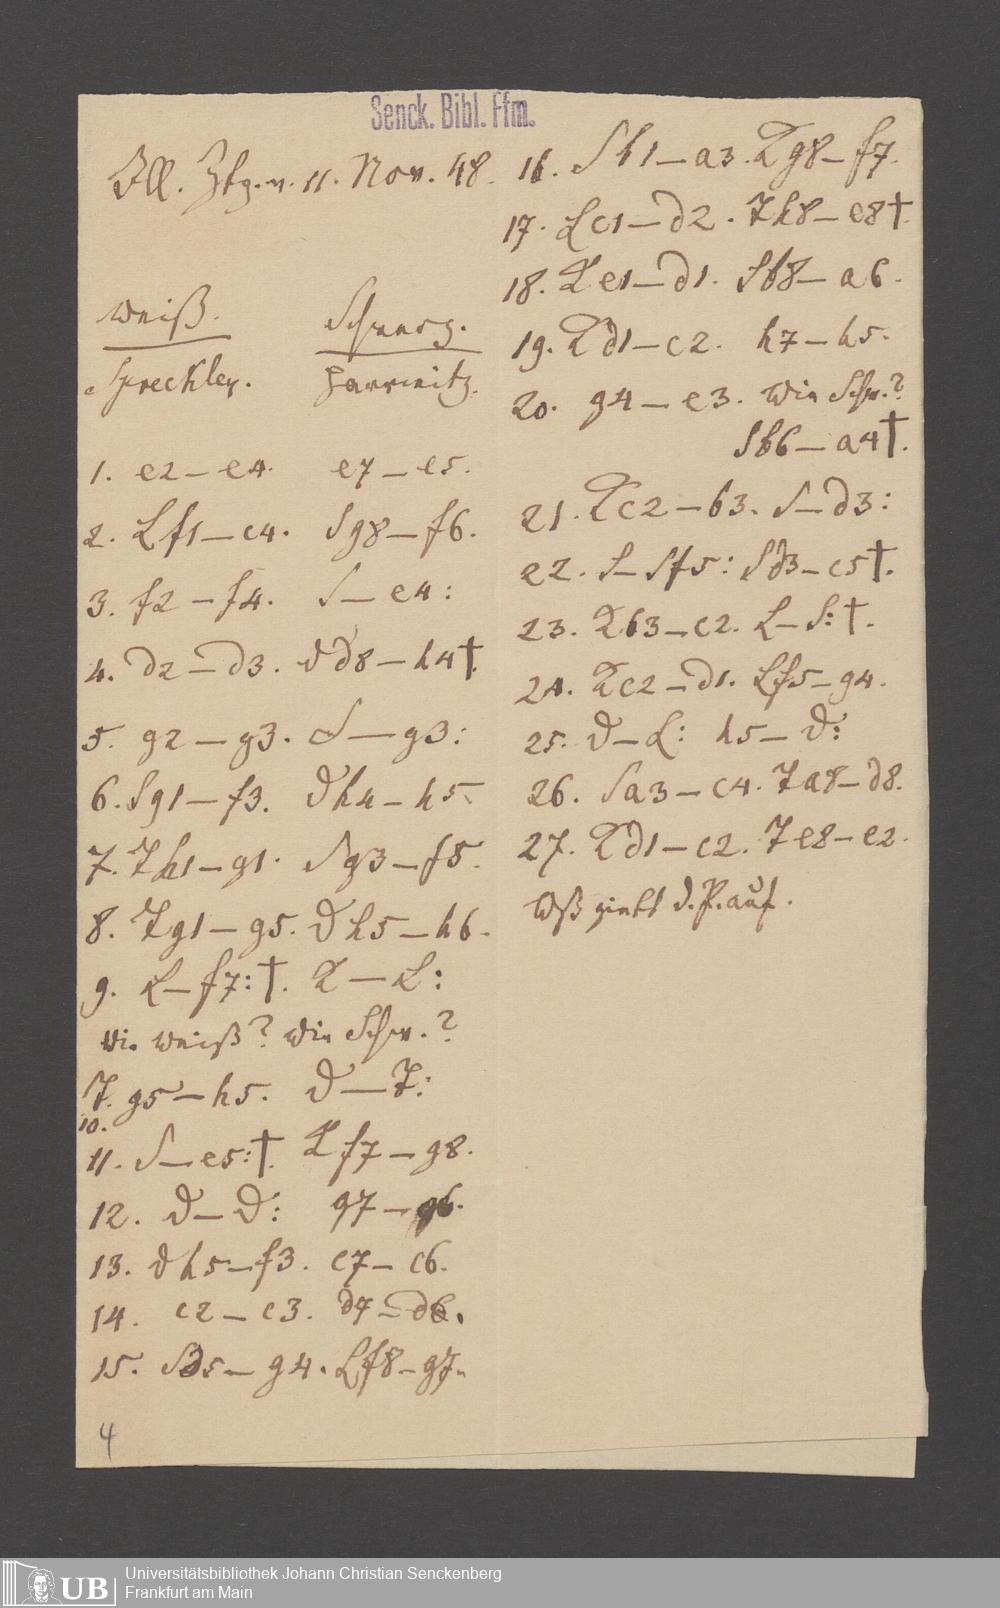 Senck. Bibl. Ffm.
Ill. Ztg. v. 11. Nov. 48.
Weiß. Schwarz.
Spreckley. Harrwitz.
1. e2 – e4. e7 – e5.
2. Lf1 – c4. Sg8 – f6.
3. f2 – f4. S – e4:
4. d2 – d3. Dd8 – h4†.
5. g2 – g3. S – g3:
6. Sg1 – f3. Dh4 – h5.
7. Th1 – g1. Sg3 – f5.
8. Tg1 – g5. Dh5 – h6.
9. L – f7:†. K – L:
Wie Weiß? Wie Schw.?
T. g5 – h5. D – T:
10.
11. S – e5:†. Kf7 – g8.
12. D – D: g7 – g6.
13. Dh5 – f3. c7 – c6.
14. c2 – c3. d7 – d6.
15. Se5 – g4. Lf8 – g7.
4
16. Sb1 – a3. Kg8 – f7.
17. Lc1 – d2. Th8 – e8†.
18. Ke1 – d1. Sb8 – a6.
19. Kd1 – c2. h7 – h5.
20. g4 – e3. Wie Schw.?
Sb6 – a4†.
21. Kc2 – b3. S – d3:
22. S – Sf5: Sd3 – c5†.
23. Kb3 – c2. L – S:†.
24. Kc2 – d1. Lf5 – g4.
25. D – L: h5 – D:
26. Sa3 – c4. Ta8 – d8.
27. Kd1 – c2. Te8 – e2.
Wß giebt d. P. auf.
UB Universitätsbibliothek Johann Christian Senckenberg
Frankfurt am Main